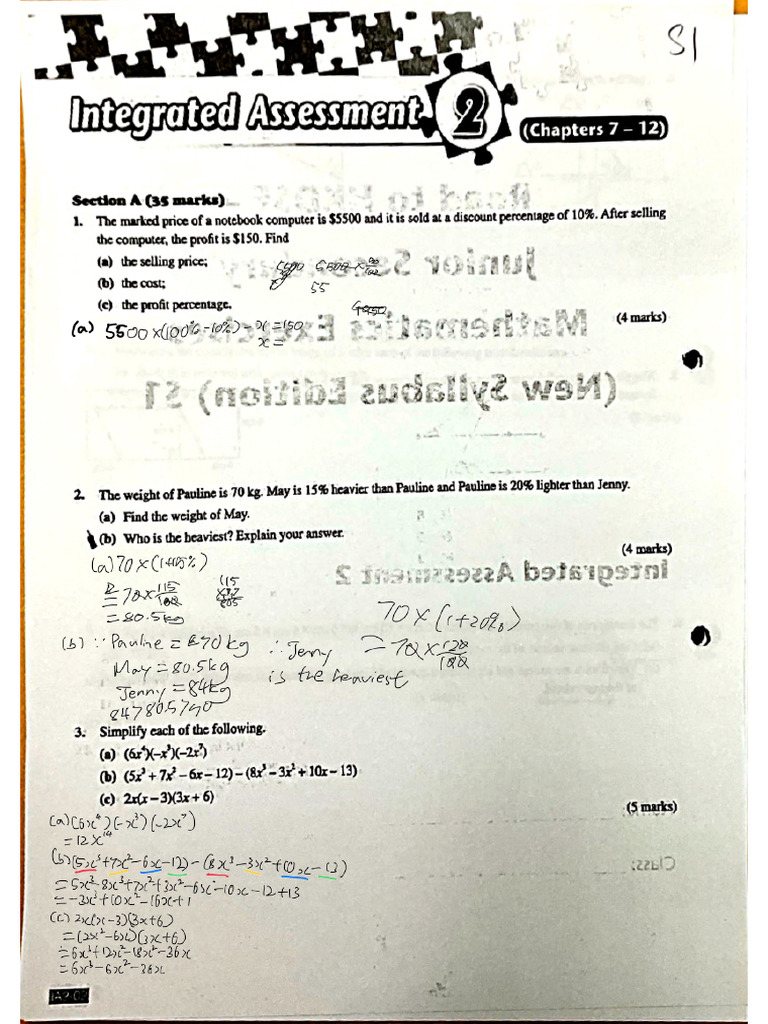 S1
Integrated Assessment 2
(Chapters 7 – 12)
Section A (35 marks)
1. The marked price of a notebook computer is $5500 and it is sold at a discount percentage of 10%. After selling
the computer, the profit is $150. Find
(a) the selling price;
(b) the cost;
55
(c) the profit percentage.
(4 marks)
(a) 5500×(100%-10%)-x=150
x=
2. The weight of Pauline is 70 kg. May is 15% heavier than Pauline and Pauline is 20% lighter than Jenny.
(a) Find the weight of May.
(b) Who is the heaviest? Explain your answer.
(4 marks)
(a) 70×(1+15%)
=70×115/100
=80.5kg
70×(1+20%)
=70×120/100
(b) ∵ Pauline = 70kg
May=80.5kg
Jenny=84kg
84>80.5>70
∴ Jenny
is the heaviest
3. Simplify each of the following.
(a) (6x⁴)(–x³)(–2x⁷)
(b) (5x³ + 7x² – 6x – 12) – (8x³ – 3x² + 10x – 13)
(c) 2x(x – 3)(3x + 6)
(5 marks)
(a) (6x⁴)(-x³)(-2x⁷)
=12x¹⁴
(b) (5x³+7x²-6x-12)-(8x³-3x²+10x-13)
=5x³-8x³+7x²+3x²-6x-10x-12+13
=-3x³+10x²-16x+1
(c) 2x(x-3)(3x+6)
=(2x²-6x)(3x+6)
=6x³+12x²-18x²-36x
=6x³-6x²-36x